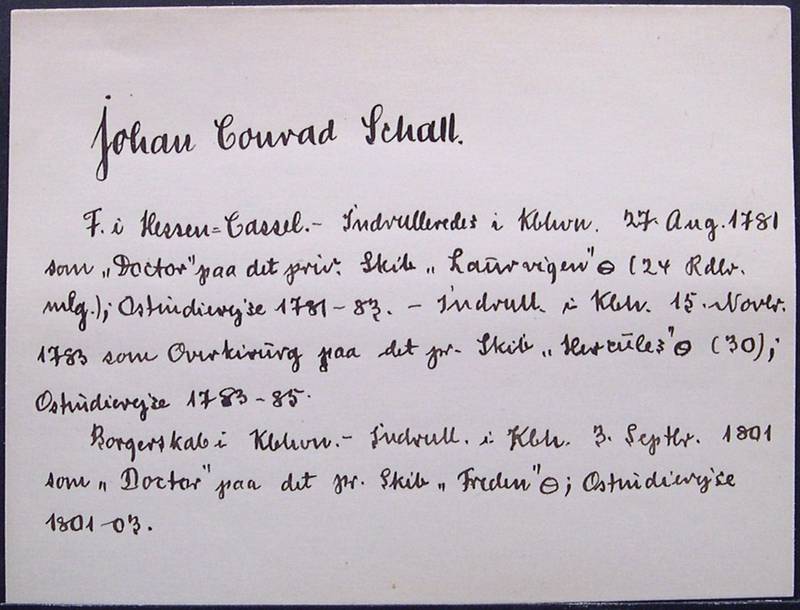 Johan Conrad Schall.
F. i Hessen=Cassel.- Indrulleredes i Kbhvn. 27. Aug. 1781
som „Doctor" paa det priv. Skib „Laurvigen" ⊖ (24 Rdlr.
mlg.); Ostindierejse 1781-83. - Indrull. i Kbh. 15. Novbr.
1783 som Overkirurg paa det pr. Skib „Hercules" ⊖ (30);
Ostindierejse 1783-85.
Borgerskab i Kbhvn.- Indrull. i Kbh. 3. Septbr. 1801
som „Doctor" paa det pr. Skib „Freden" ⊖; Ostindierejse
1801-03.